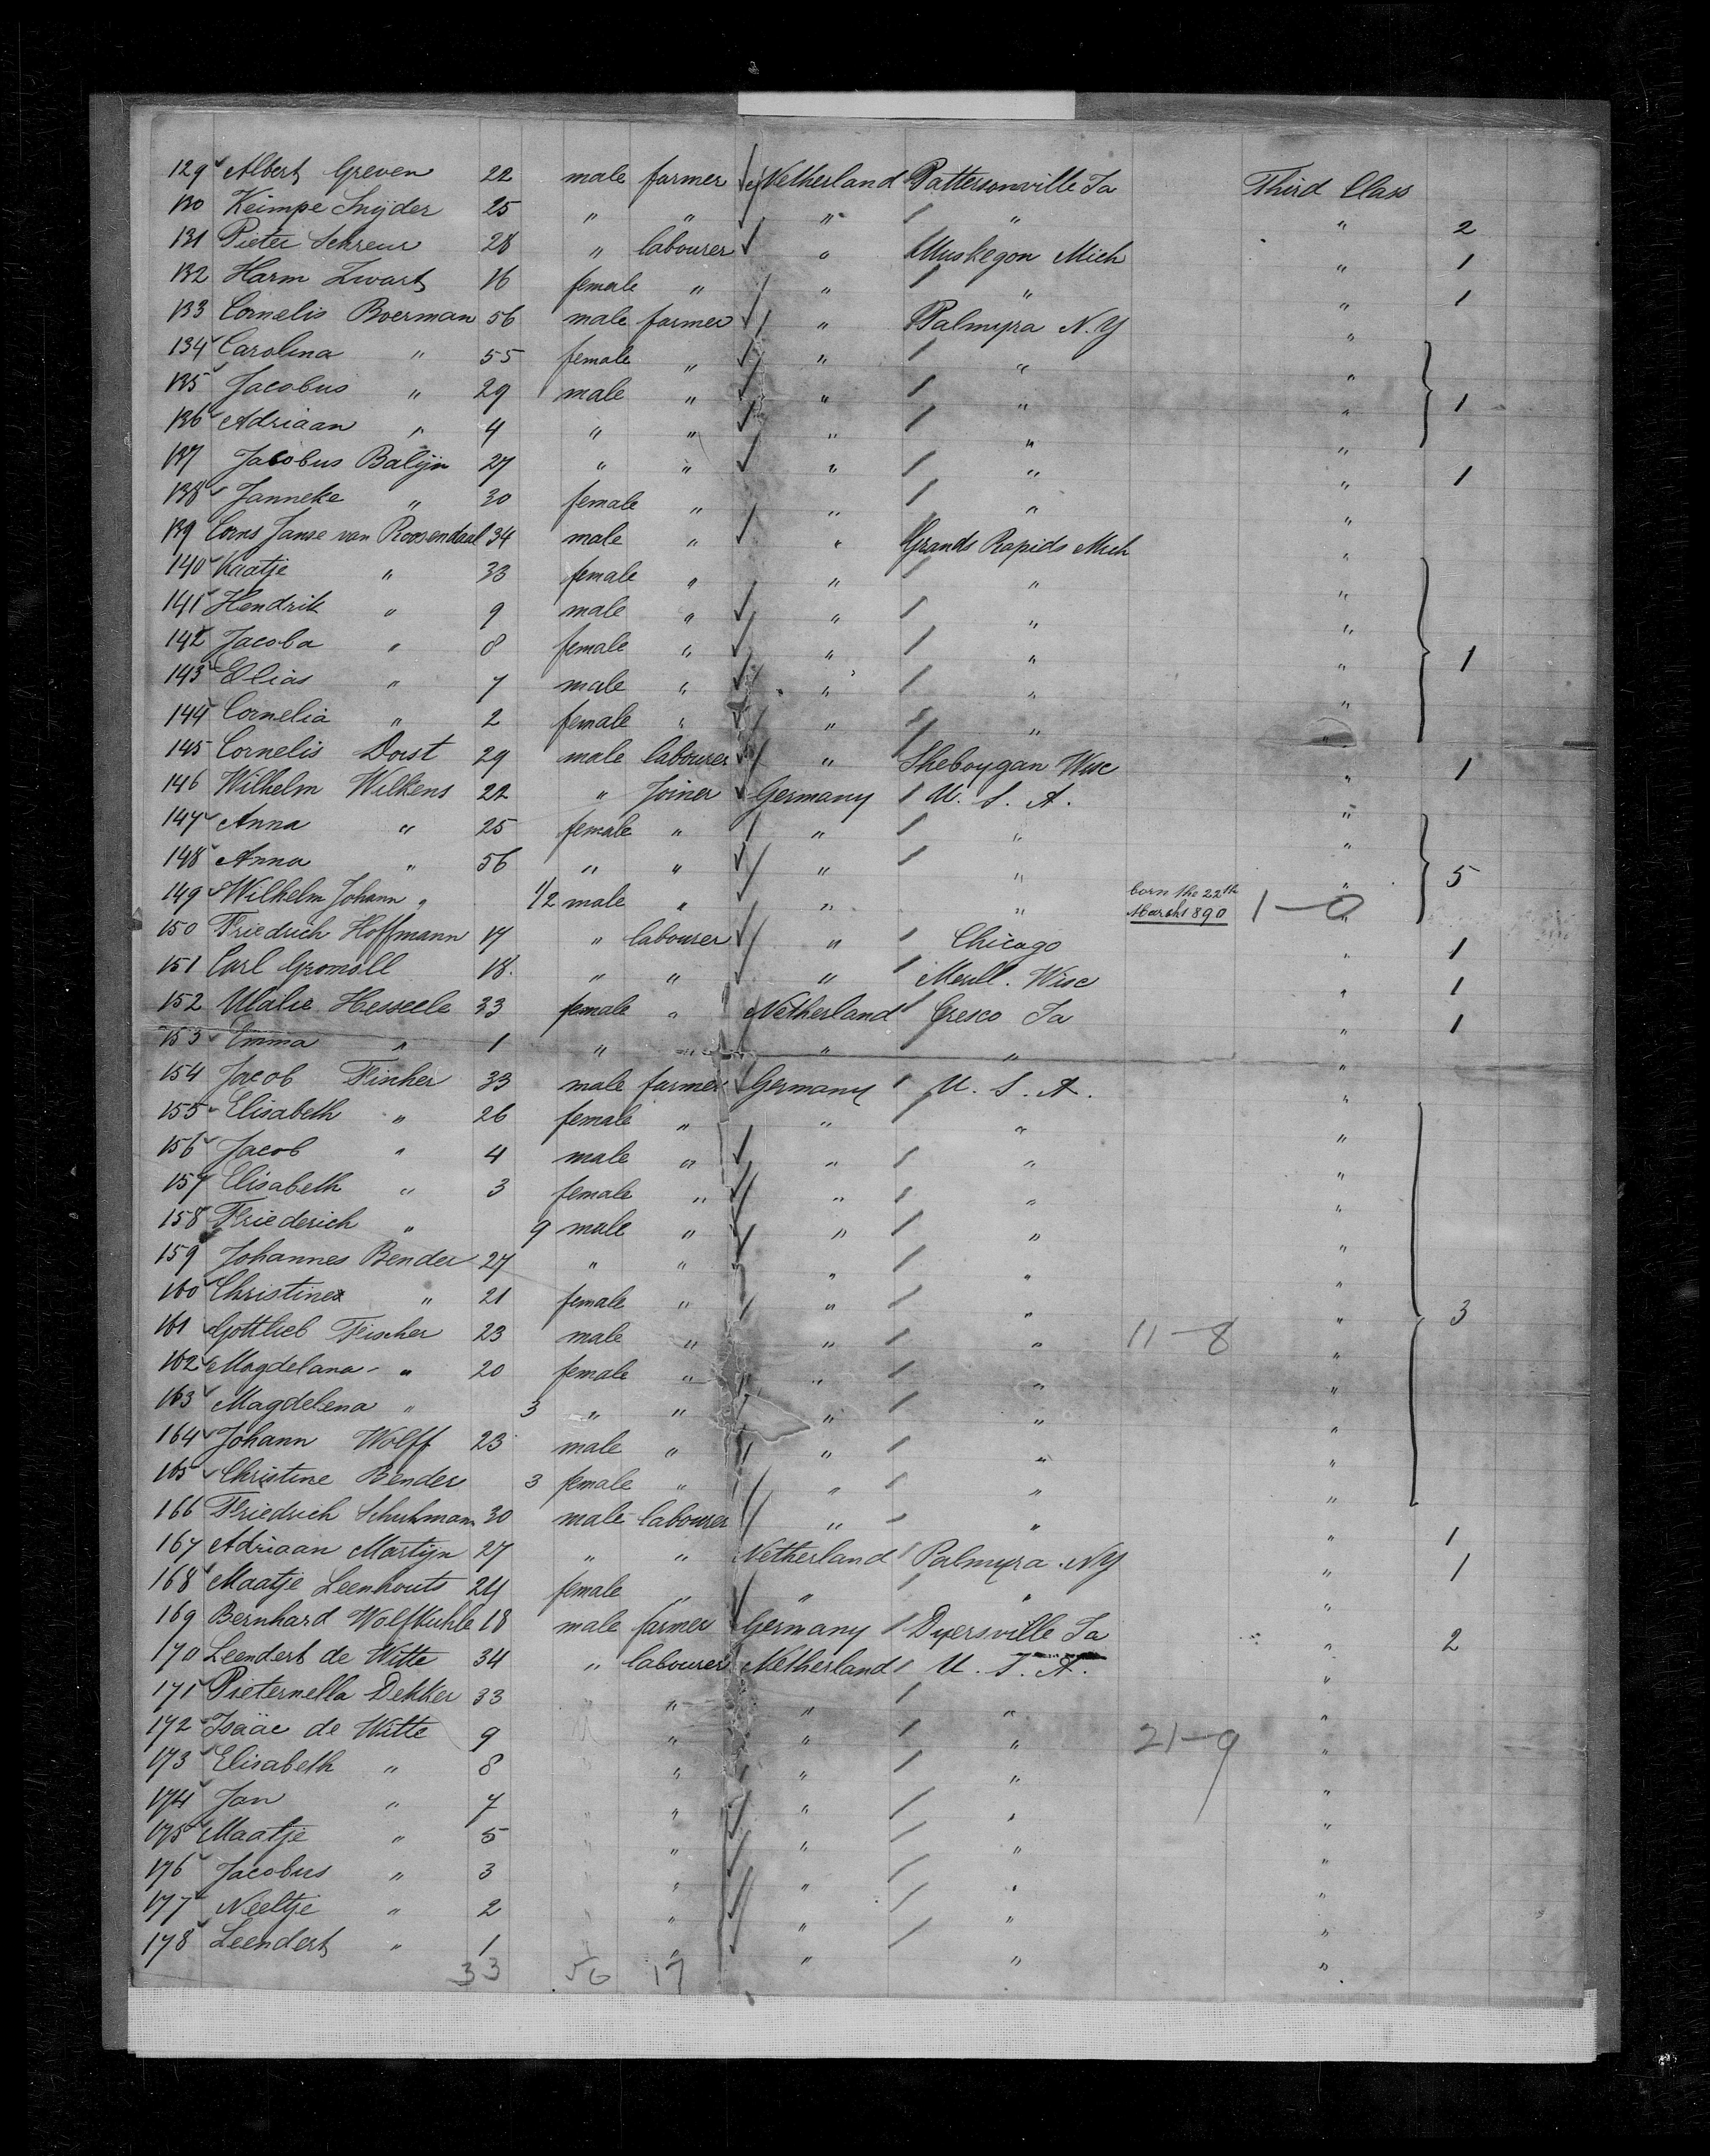 129 Albert Greven 22 male farmer Netherland Pattersonville Ia Third Class
130 Keimpe Snyder 25 " " " " " 2
131 Pieter Schreur 28 " labourer " Muskegon Mich " 1
132 Harm Zwart 16 female " " " " 1
133 Cornelis Boerman 56 male farmer " Palmyra N.Y "
134 Carolina " 55 female " " " "
135 Jacobus " 29 male " " " " 1
136 Adriaan " 4 " " " " "
137 Jacobus Balijn 27 " " " " " 1
138 Janneke " 30 female " " " "
139 Corns Janse van Roosendaal 34 male " " Grands Rapids Mich "
140 Kaatje " 33 female " " " "
141 Hendrik " 9 male " " " "
142 Jacoba " 8 female " " " " 1
143 Elias " 7 male " " " "
144 Cornelia " 2 female " " " "
145 Cornelis Dorst 29 male labourer " Sheboygan Wisc " 1
146 Wilhelm Wilkens 22 " Joiner Germany U. S. A. "
147 Anna " 25 female " " " "
148 Anna " 56 " " " " " 5
149 Wilhelm Johann " 1/2 male " " " born the 22th March 1890 1-0 "
150 Friedrich Hoffmann 17 " labourer " Chicago " 1
151 Carl Gromoll 18. " " " Merill. Wisc " 1
152 Ulalie Hesseele 33 female " Netherland Cresco Ia " 1
153 Emma " 1 " " " " "
154 Jacob Fischer 33 male farmer Germany U. S. A. "
155 Elisabeth " 26 female " " " "
156 Jacob " 4 male " " " "
157 Elisabeth " 3 female " " " "
158 Friederich " 9 male " " " "
159 Johannes Bender 27 " " " " "
160 Christine " 21 female " " " " 3
161 Gottlieb Fischer 23 male " " " 11-8 "
162 Magdelana " 20 female " " " "
163 Magdelena " 3 " " " " "
164 Johann Wolff 23 male " " " "
165 Christine Bender 3 female " " " "
166 Friedrich Schuhmann 30 male labourer " " " 1
167 Adriaan Martijn 27 " " Netherland Palmyra. NY " 1
168 Maatje Leenhouts 24 female " " " "
169 Bernhard Wolfkuhle 18 male farmer Germany Dyersville Ia " 2
170 Leendert de Witte 34 " labourer Netherland U. S. A. "
171 Pieternella Dekker 33 " " " " "
172 Isäac de Witte 9 " " " 21-9 "
173 Elisabeth " 8 " " " "
174 Jan " 7 " " " " "
175 Maatje " 5 " " " "
176 Jacobus " 3 " " " "
177 Neeltje " 2 " " " "
178 Leendert " 1 " " " "
33 50 17